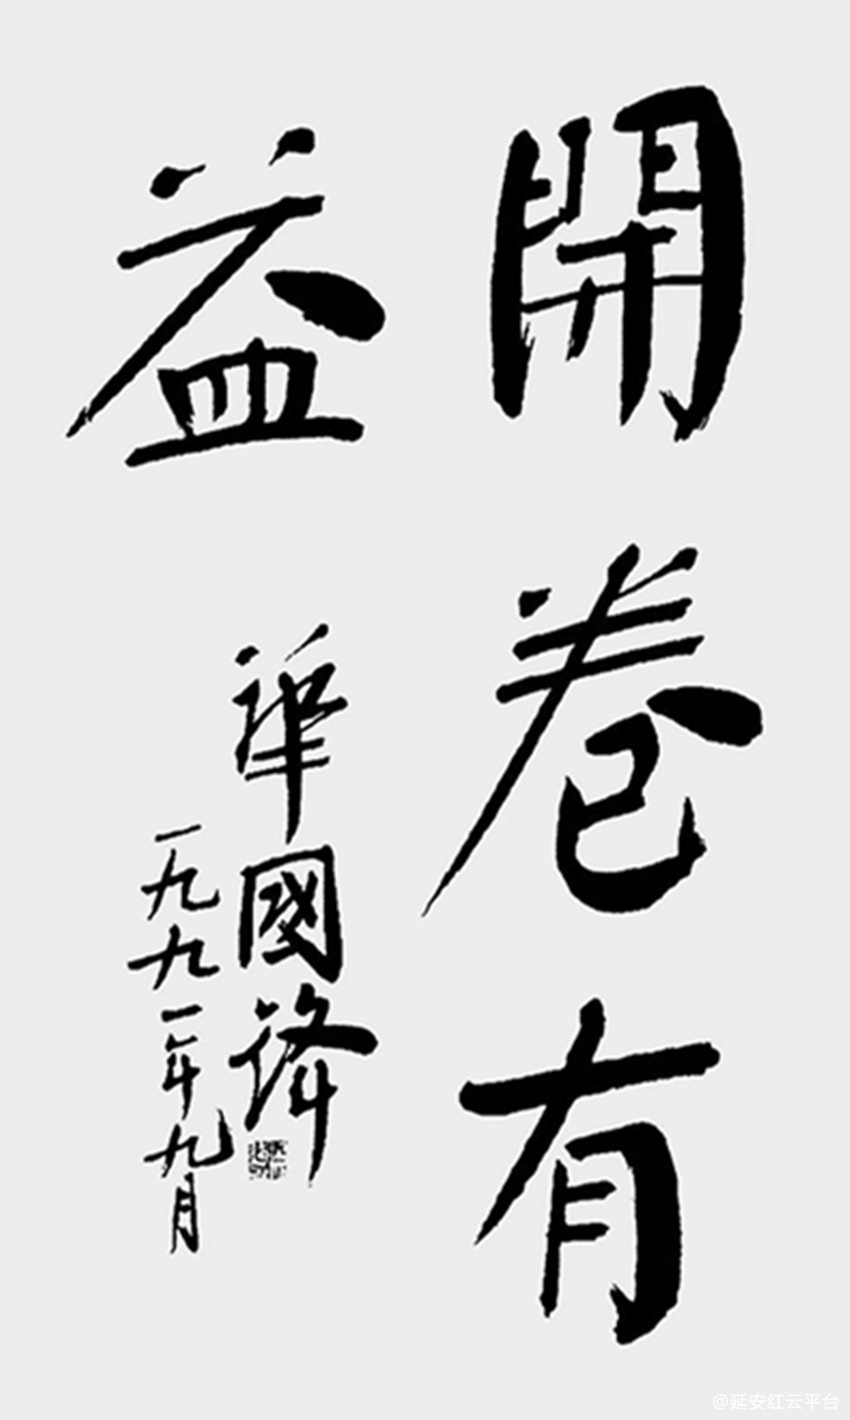 開卷有
益
華國鋒
一九九一年九月
@延安红云平台